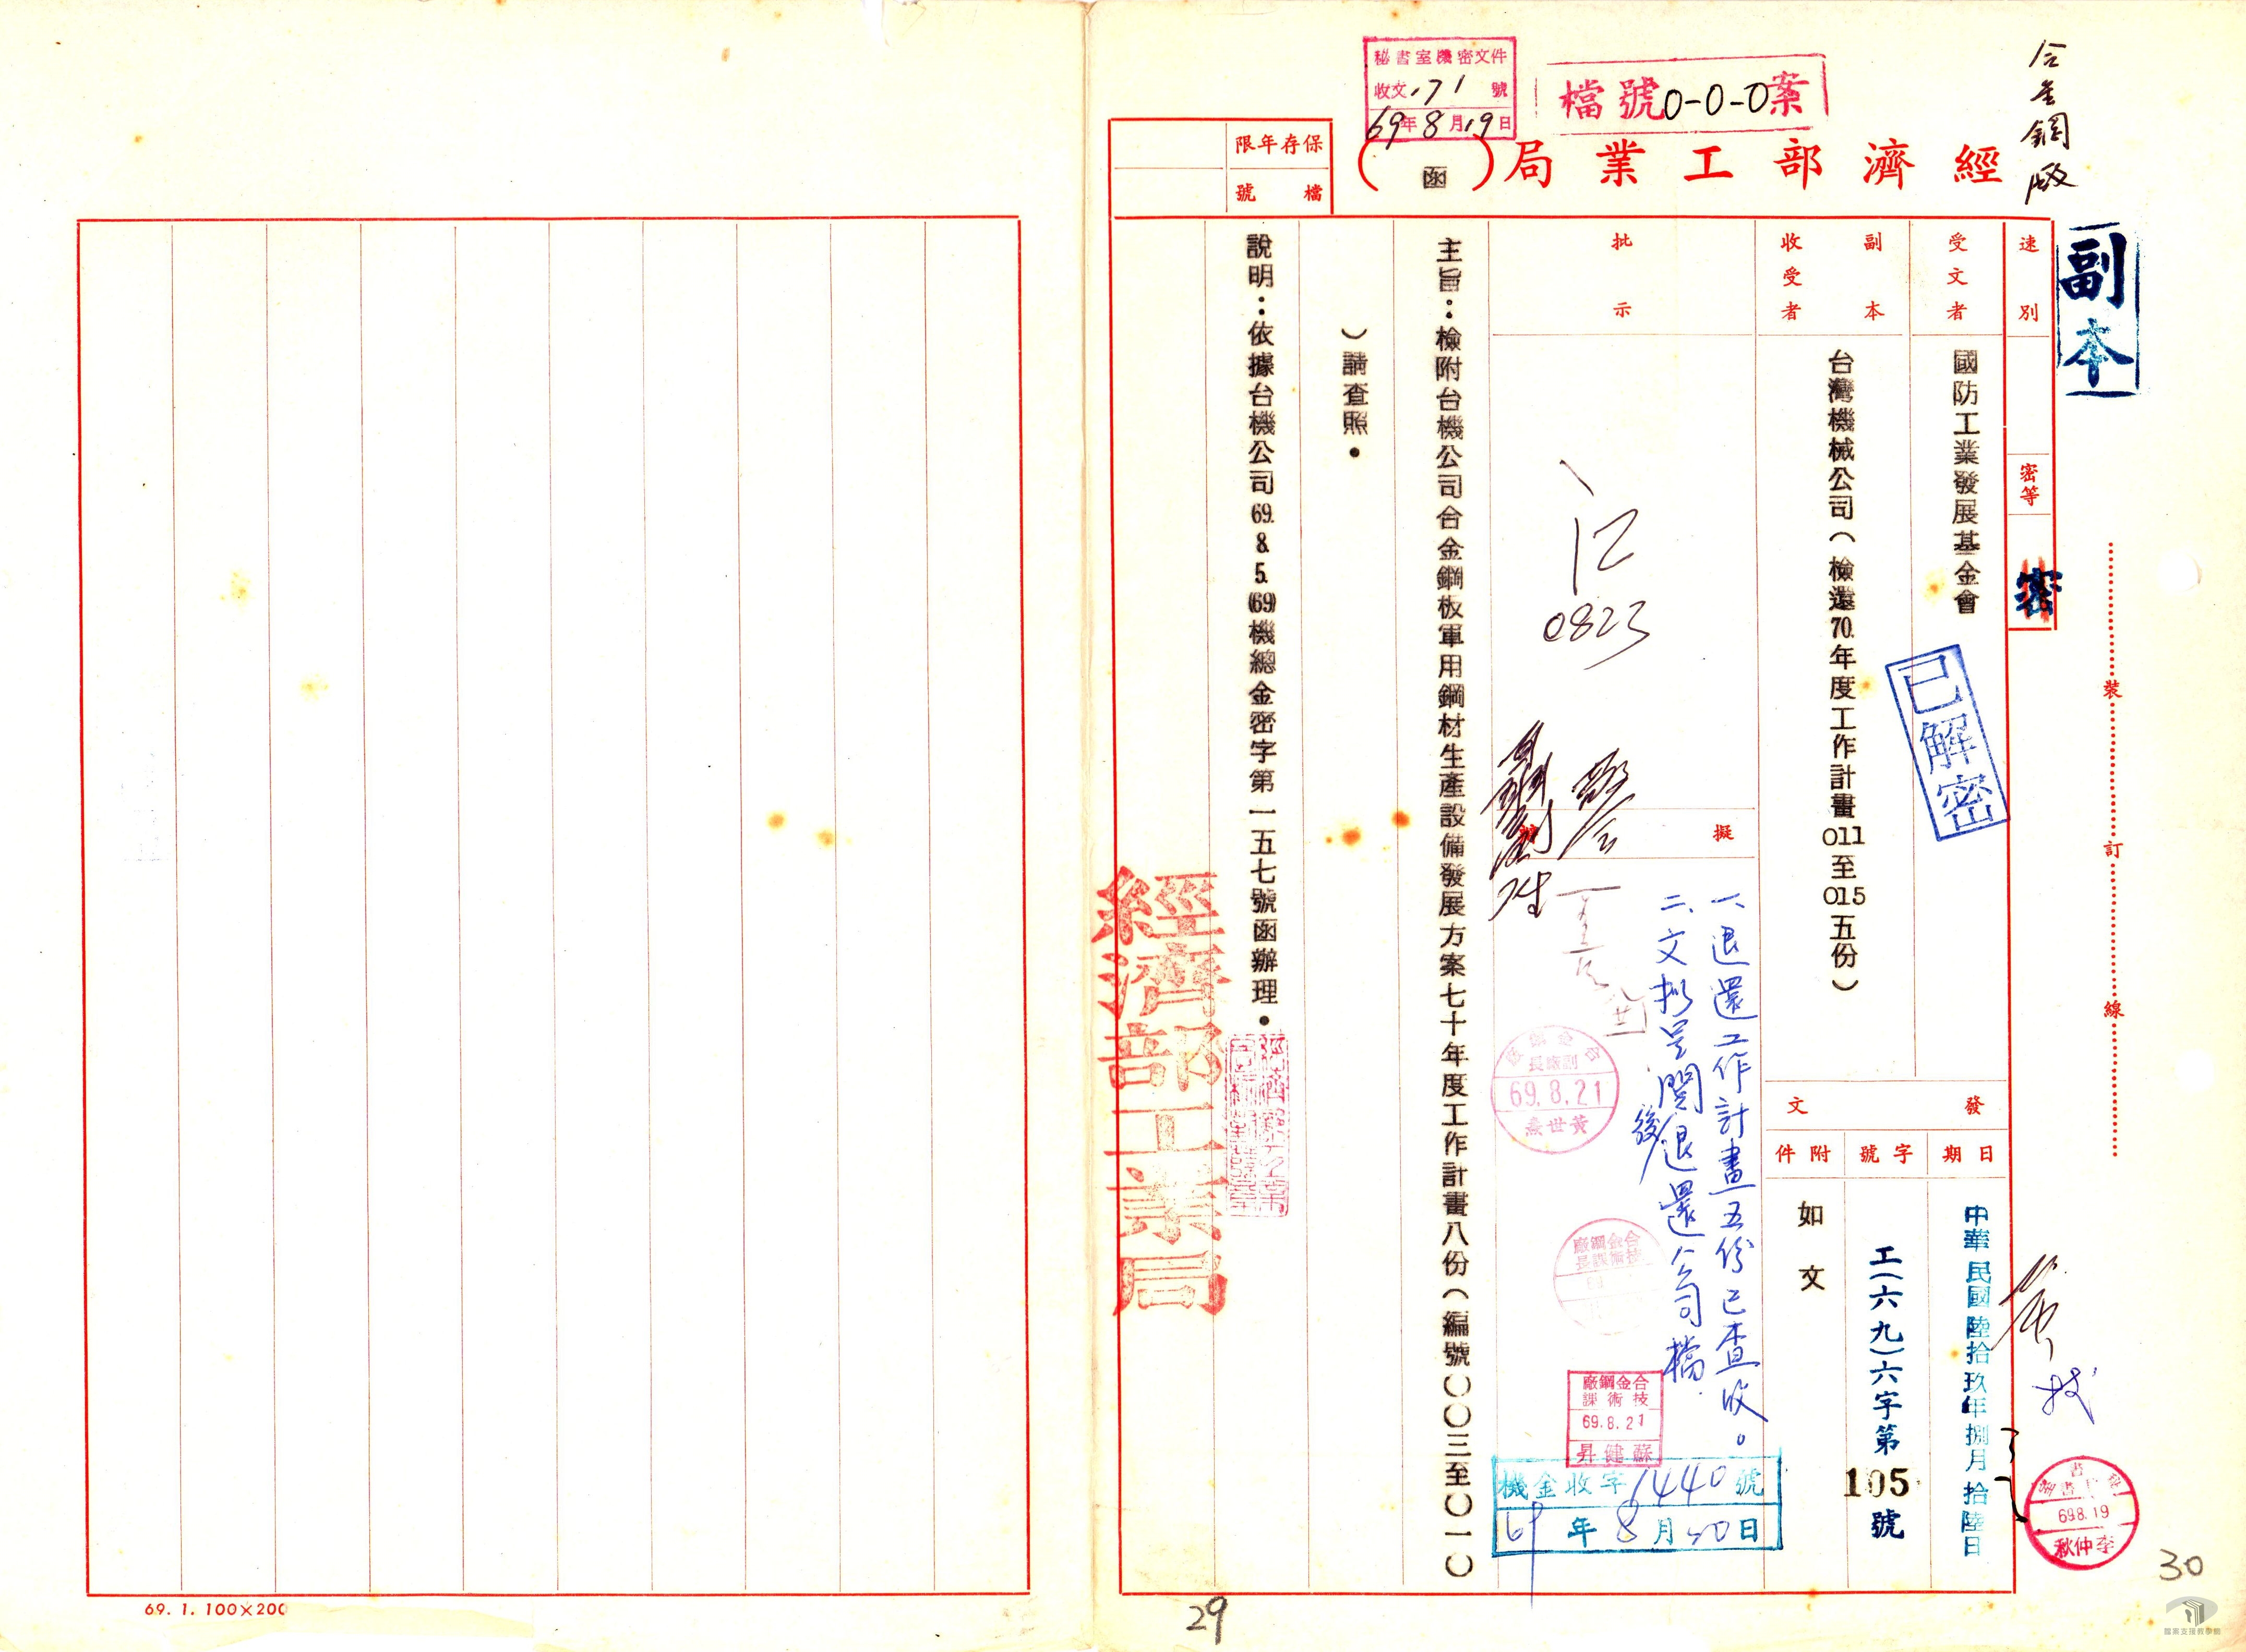 合金鋼廠
檔號0-0-0案
秘書室機密文件
收文171號
69年8月19日
經濟部工業局(函)
保存年限
檔號
副本
速別
密等
密
受文者
國防工業發展基金會
已解密
副本收受者
台灣機械公司(檢還70.年度工作計畫011至015五份)
發文
日期
中華民國陸拾玖年捌月拾陸日
字號
工(六九)六字第105號
附件
如文
批示
0823
擬
一、退還工作計畫五份已查收。
二、文擬呈閱後退還公司檔.
黃世燾
副廠長
69.8.21
合金鋼廠
技術課長
合金鋼廠
技術課
69.8.21
蘇健昇
機金收字1440號
69年8月20日
主旨:檢附台機公司合金鋼板軍用鋼材生產設備發展方案七十年度工作計畫八份(編號〇〇三至〇一〇
)請查照。
說明:依據台機公司69.8.5.(69)機總金密字第一五七號函辦理。
經濟部工業局
裝訂線
69.8.19
李仲秋
30
29
69. 1. 100×200
檔案支援教學網